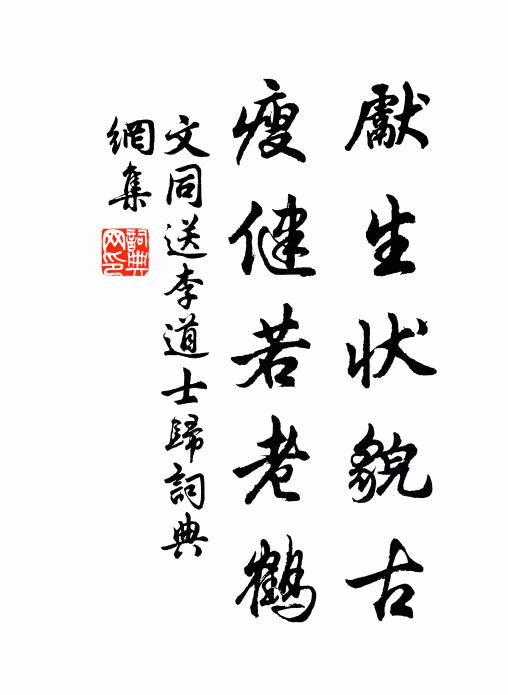 獻生狀貌古
瘦健若老鶴
文同送李道士歸詞典
網集
詞典網印